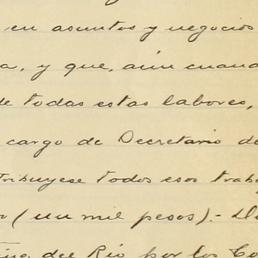 en asuntos y negocios
a, y que, aún cuand
de todas estas labores,
cargo de Secretario de
tribuyese todos esos trab
(un mil pesos).-
del Río por los Co